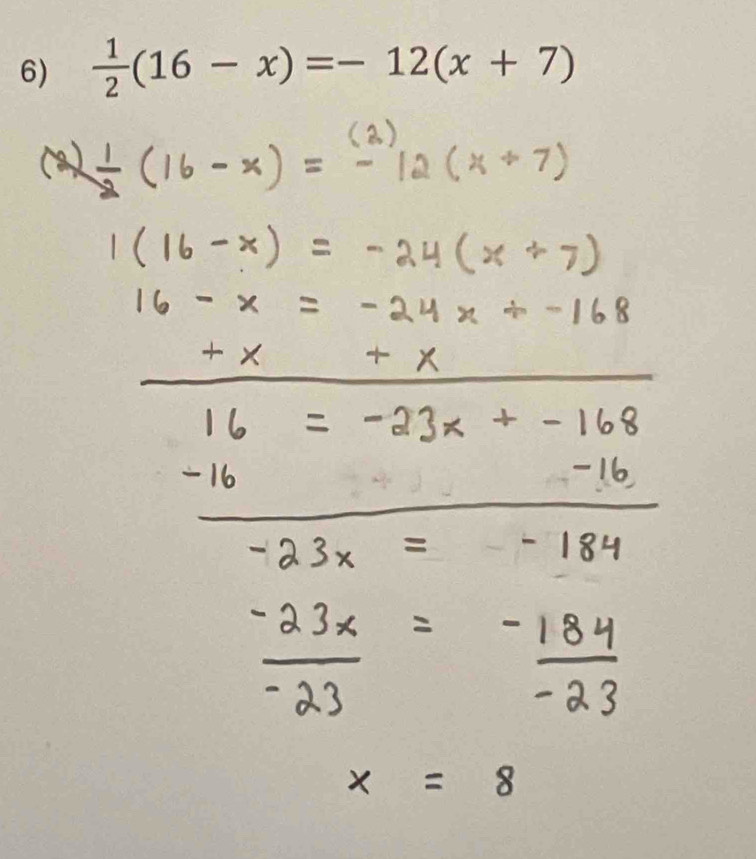 6) 1/2(16 - x) =- 12(x + 7)
(2) 1/2 (16 - x) = (2) - 12 (x + 7)
1 (16 - x) = -24 (x + 7)
16 - x = -24x + -168
+ x + x
16 = -23x + -168
-16 -16
-23x = -184
-23x/-23 = -184/-23
x = 8